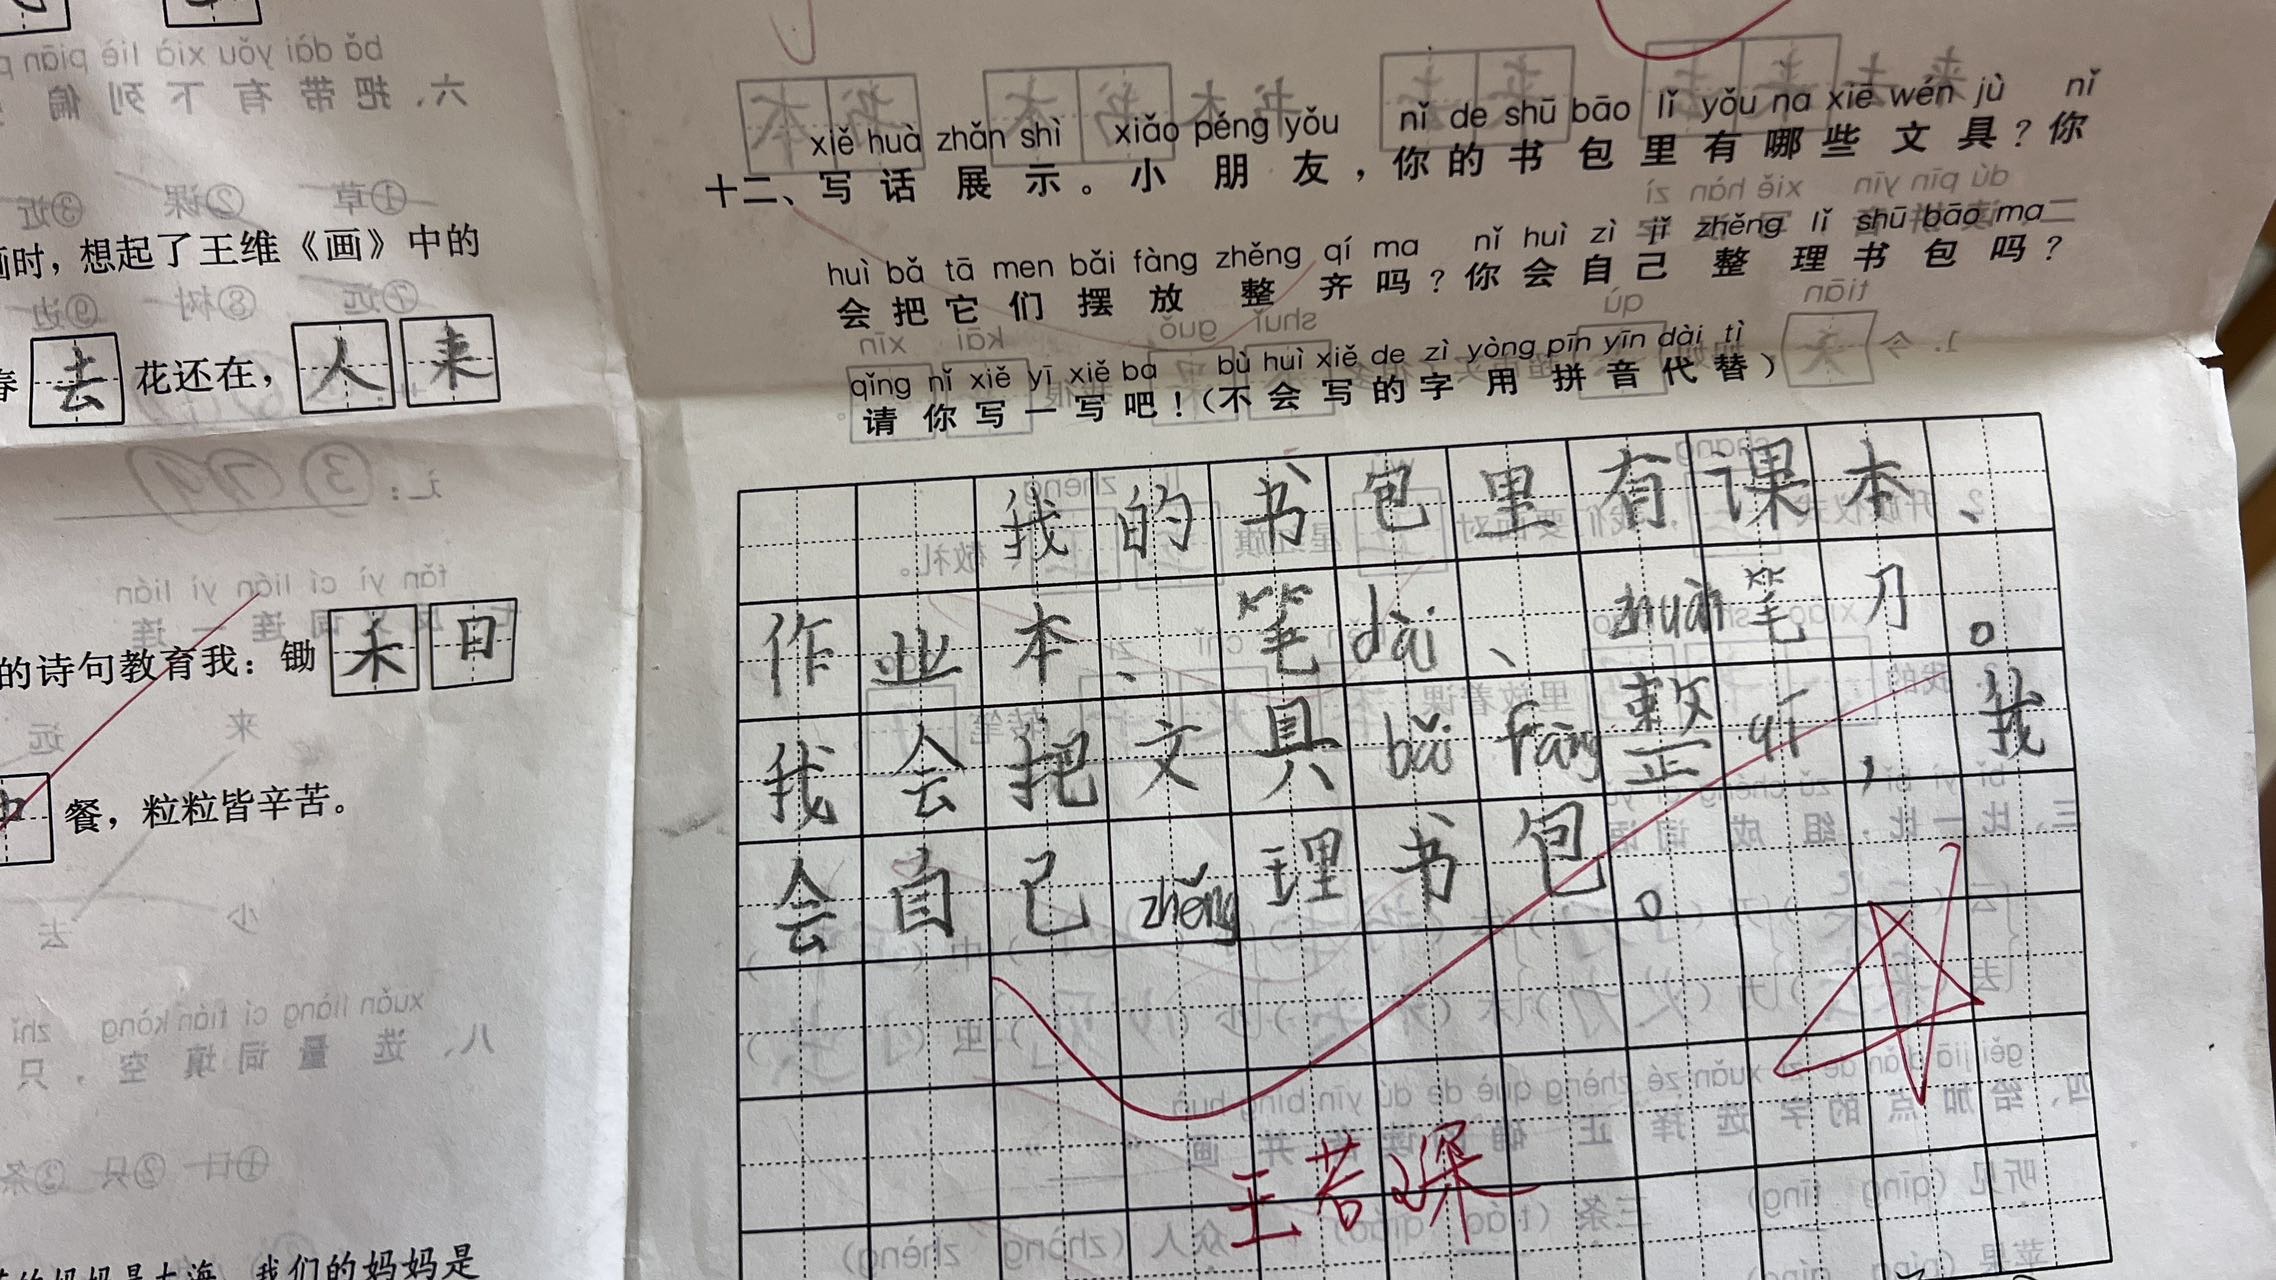 画时，想起了王维《画》中的
春去花还在，人来
的诗句教育我：锄禾日
中餐，粒粒皆辛苦。
我们的妈妈是
xiě huà zhǎn shì xiǎo péng yǒu nǐ de shū bāo lǐ yǒu na xiē wén jù nǐ
十二、写话展示。小朋友，你的书包里有哪些文具？你
huì bǎ tā men bǎi fàng zhěng qí ma nǐ huì zì jǐ zhěng lǐ shū bāo ma
会把它们摆放整齐吗？你会自己整理书包吗？
qǐng nǐ xiě yī xiě ba bù huì xiě de zì yòng pīn yīn dài tì
请你写一写吧！（不会写的字用拼音代替）
我的书包里有课本、
作业本、笔dài、zhuàn笔刀。
我会把文具bǎi fàng整qí，我
会自己zhěng理书包。
王若